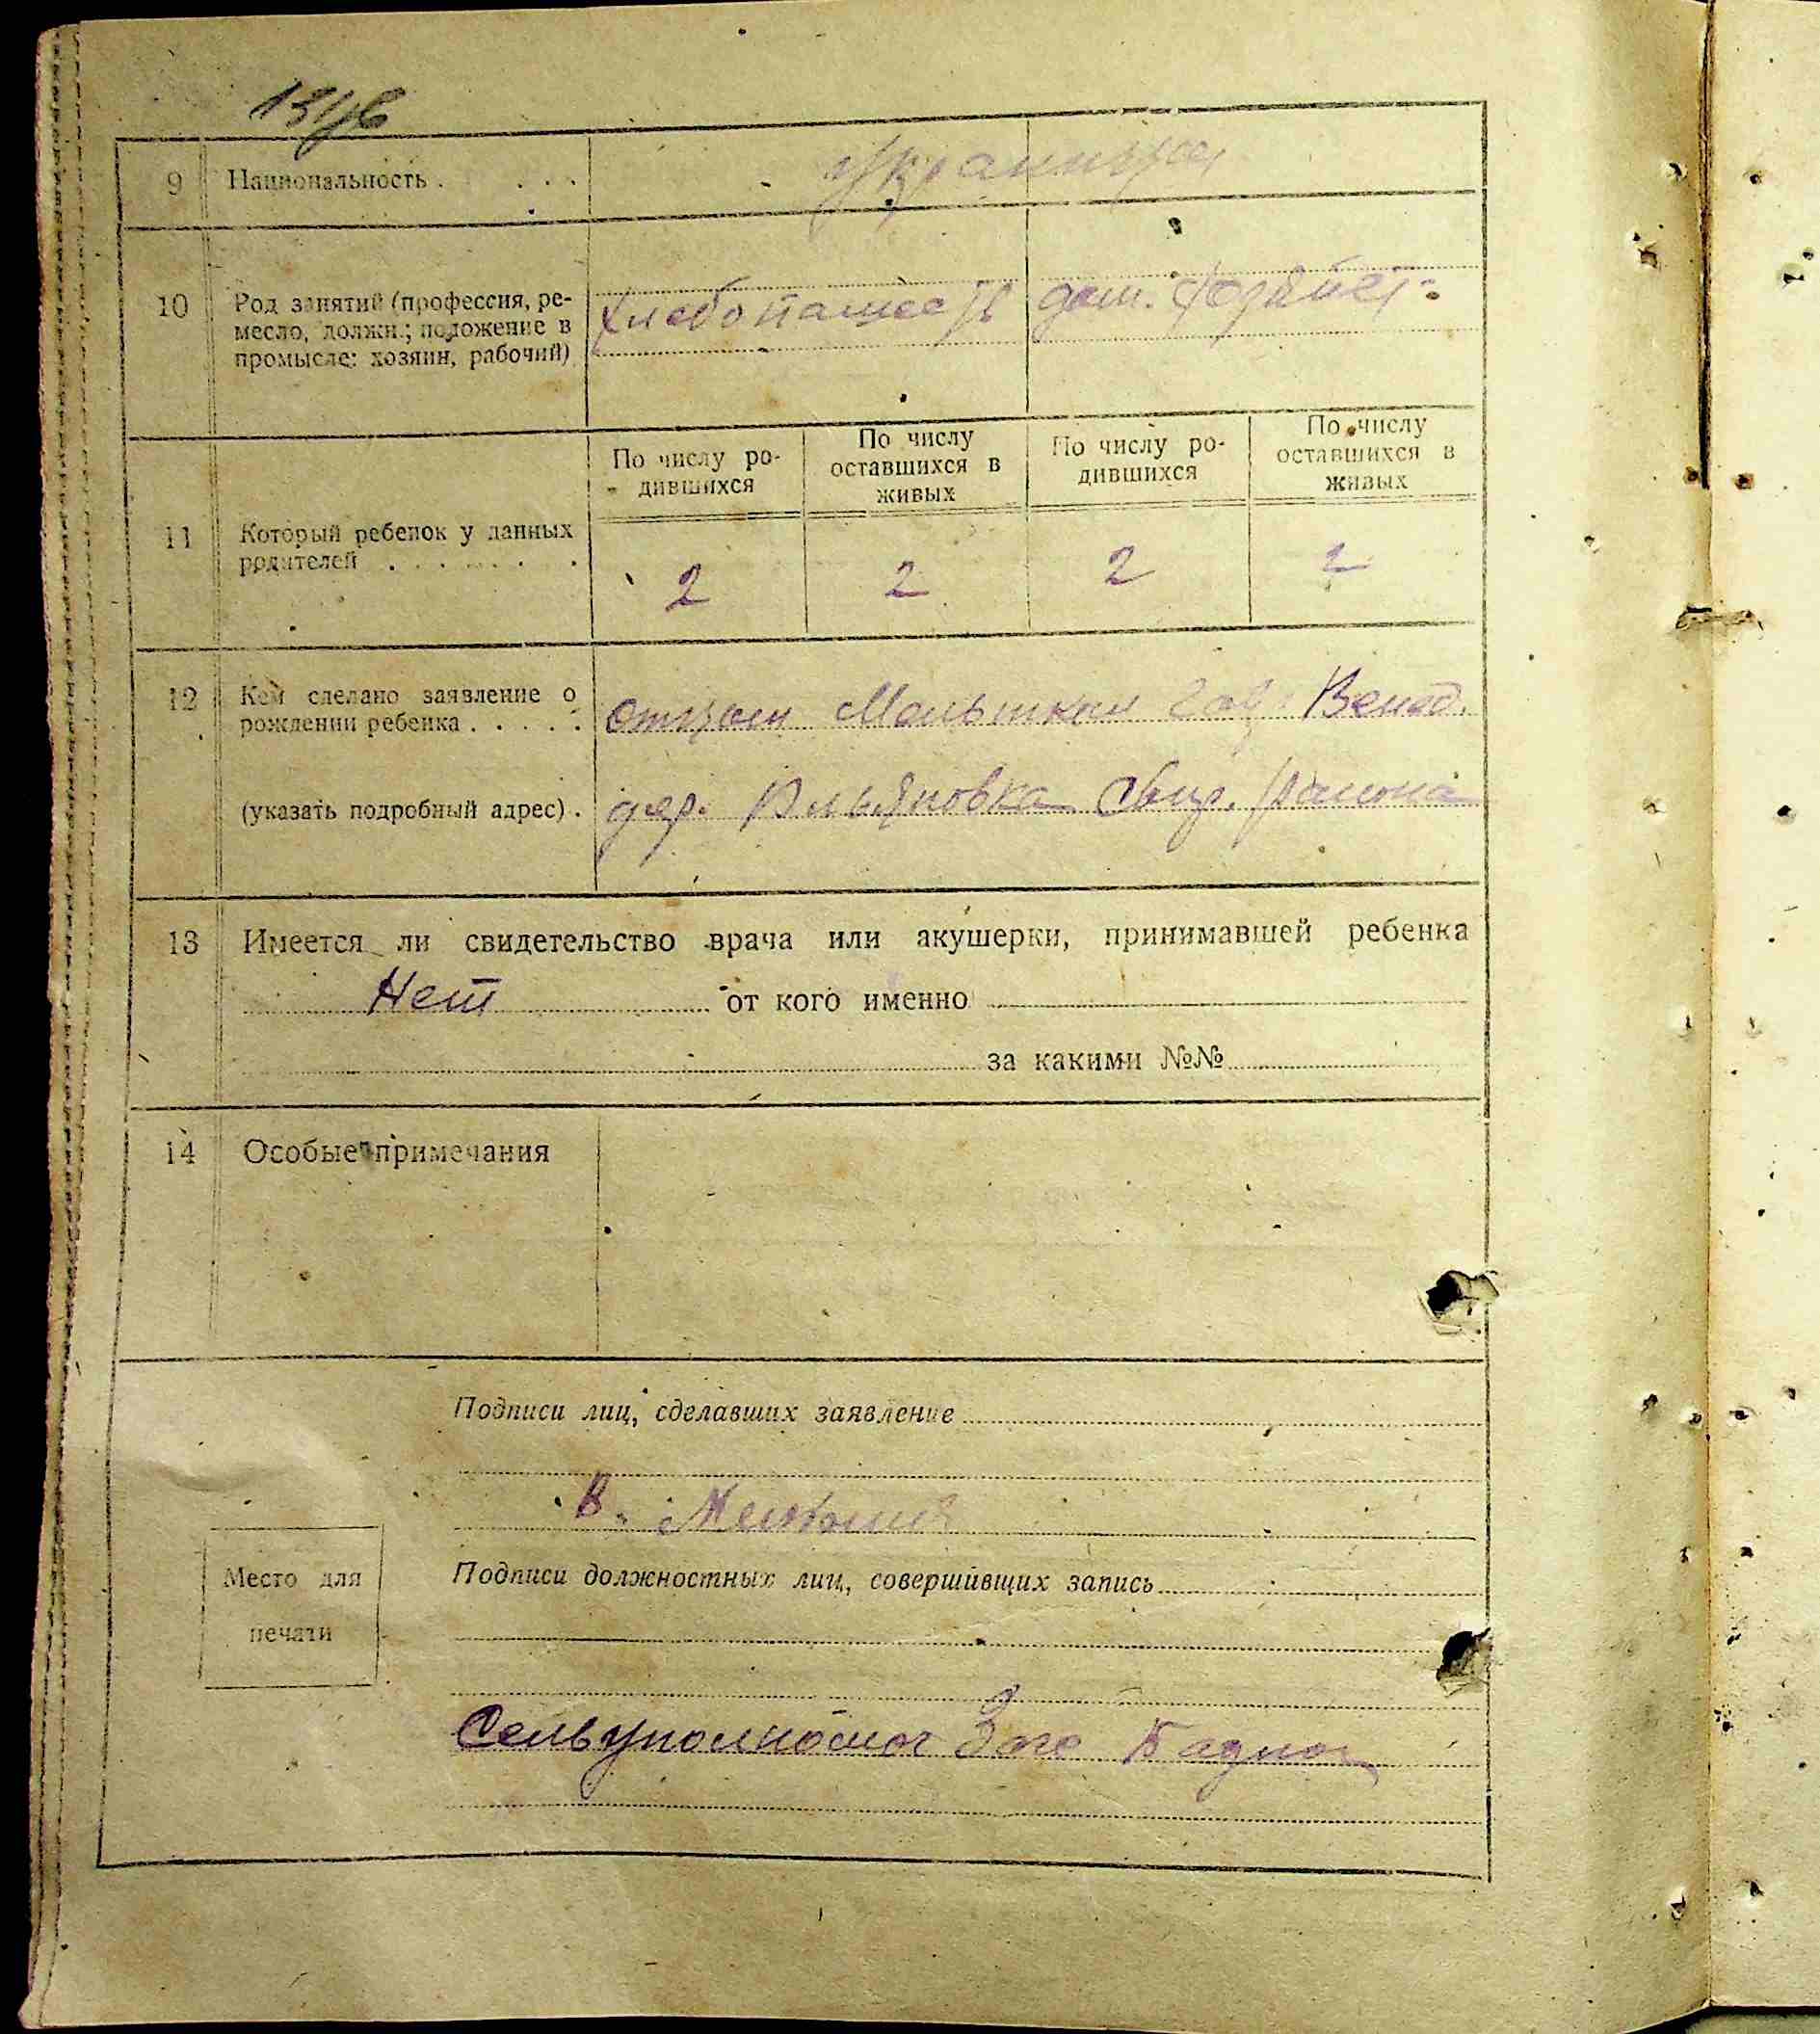 9 Национальность . . . . украинцы
10 Род занятий (профессия, ре-
месло, должн.; положение в
промысле: хозяин, рабочий)
хлебопашество дом. хозяйст.
По числу ро-
дившихся
По числу
оставшихся в
живых
По числу ро-
дившихся
По числу
оставшихся в
живых
11 Который ребенок у данных
родителей . . . . . . .
2 2 2 2
12 Кем сделано заявление о
рождении ребенка . . . . .
отцом
(указать подробный адрес) .
дер. района
13 Имеется ли свидетельство врача или акушерки, принимавшей ребенка
Нет от кого именно
за какими №№
14 Особые примечания
Подписи лиц, сделавших заявление
В.
Место для
печати
Подписи должностных лиц, совершивших запись
Сельуполномоч